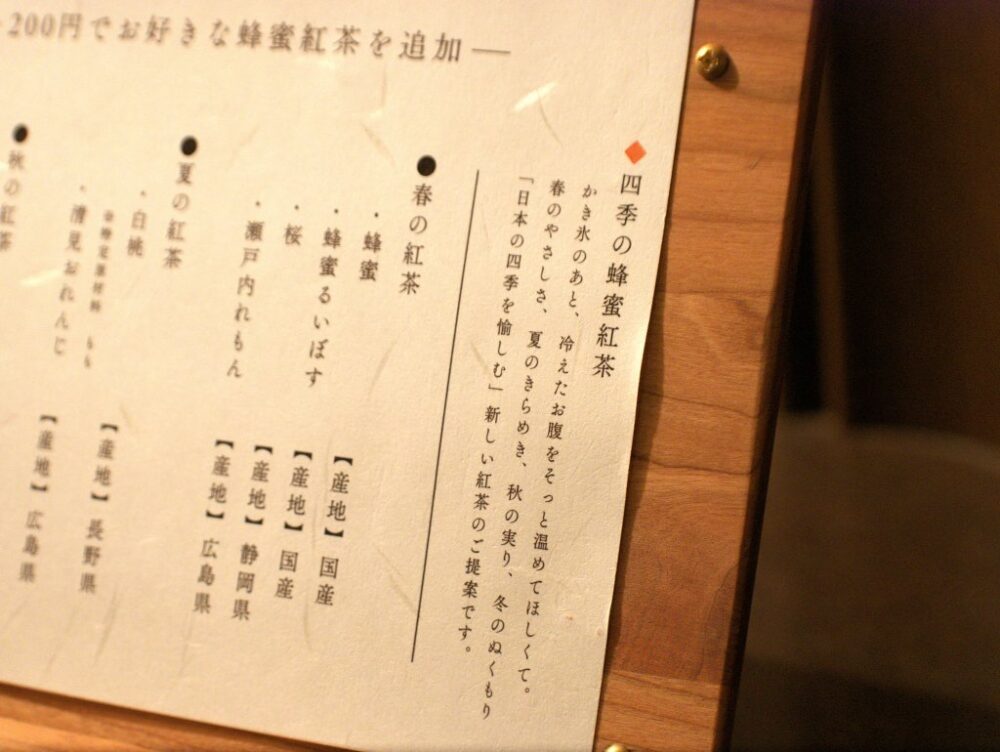 200円でお好きな蜂蜜紅茶を追加―
◆四季の蜂蜜紅茶
かき氷のあと、冷えたお腹をそっと温めてほしくて。
春のやさしさ、夏のきらめき、秋の実り、冬のぬくもり
「日本の四季を愉しむ」新しい紅茶のご提案です。
●春の紅茶
・蜂蜜【産地】国産
・蜂蜜るいぼす【産地】国産
・桜【産地】静岡県
・瀬戸内れもん【産地】広島県
●夏の紅茶
・白桃【産地】長野県
・清見おれんじ【産地】広島県
●秋の紅茶